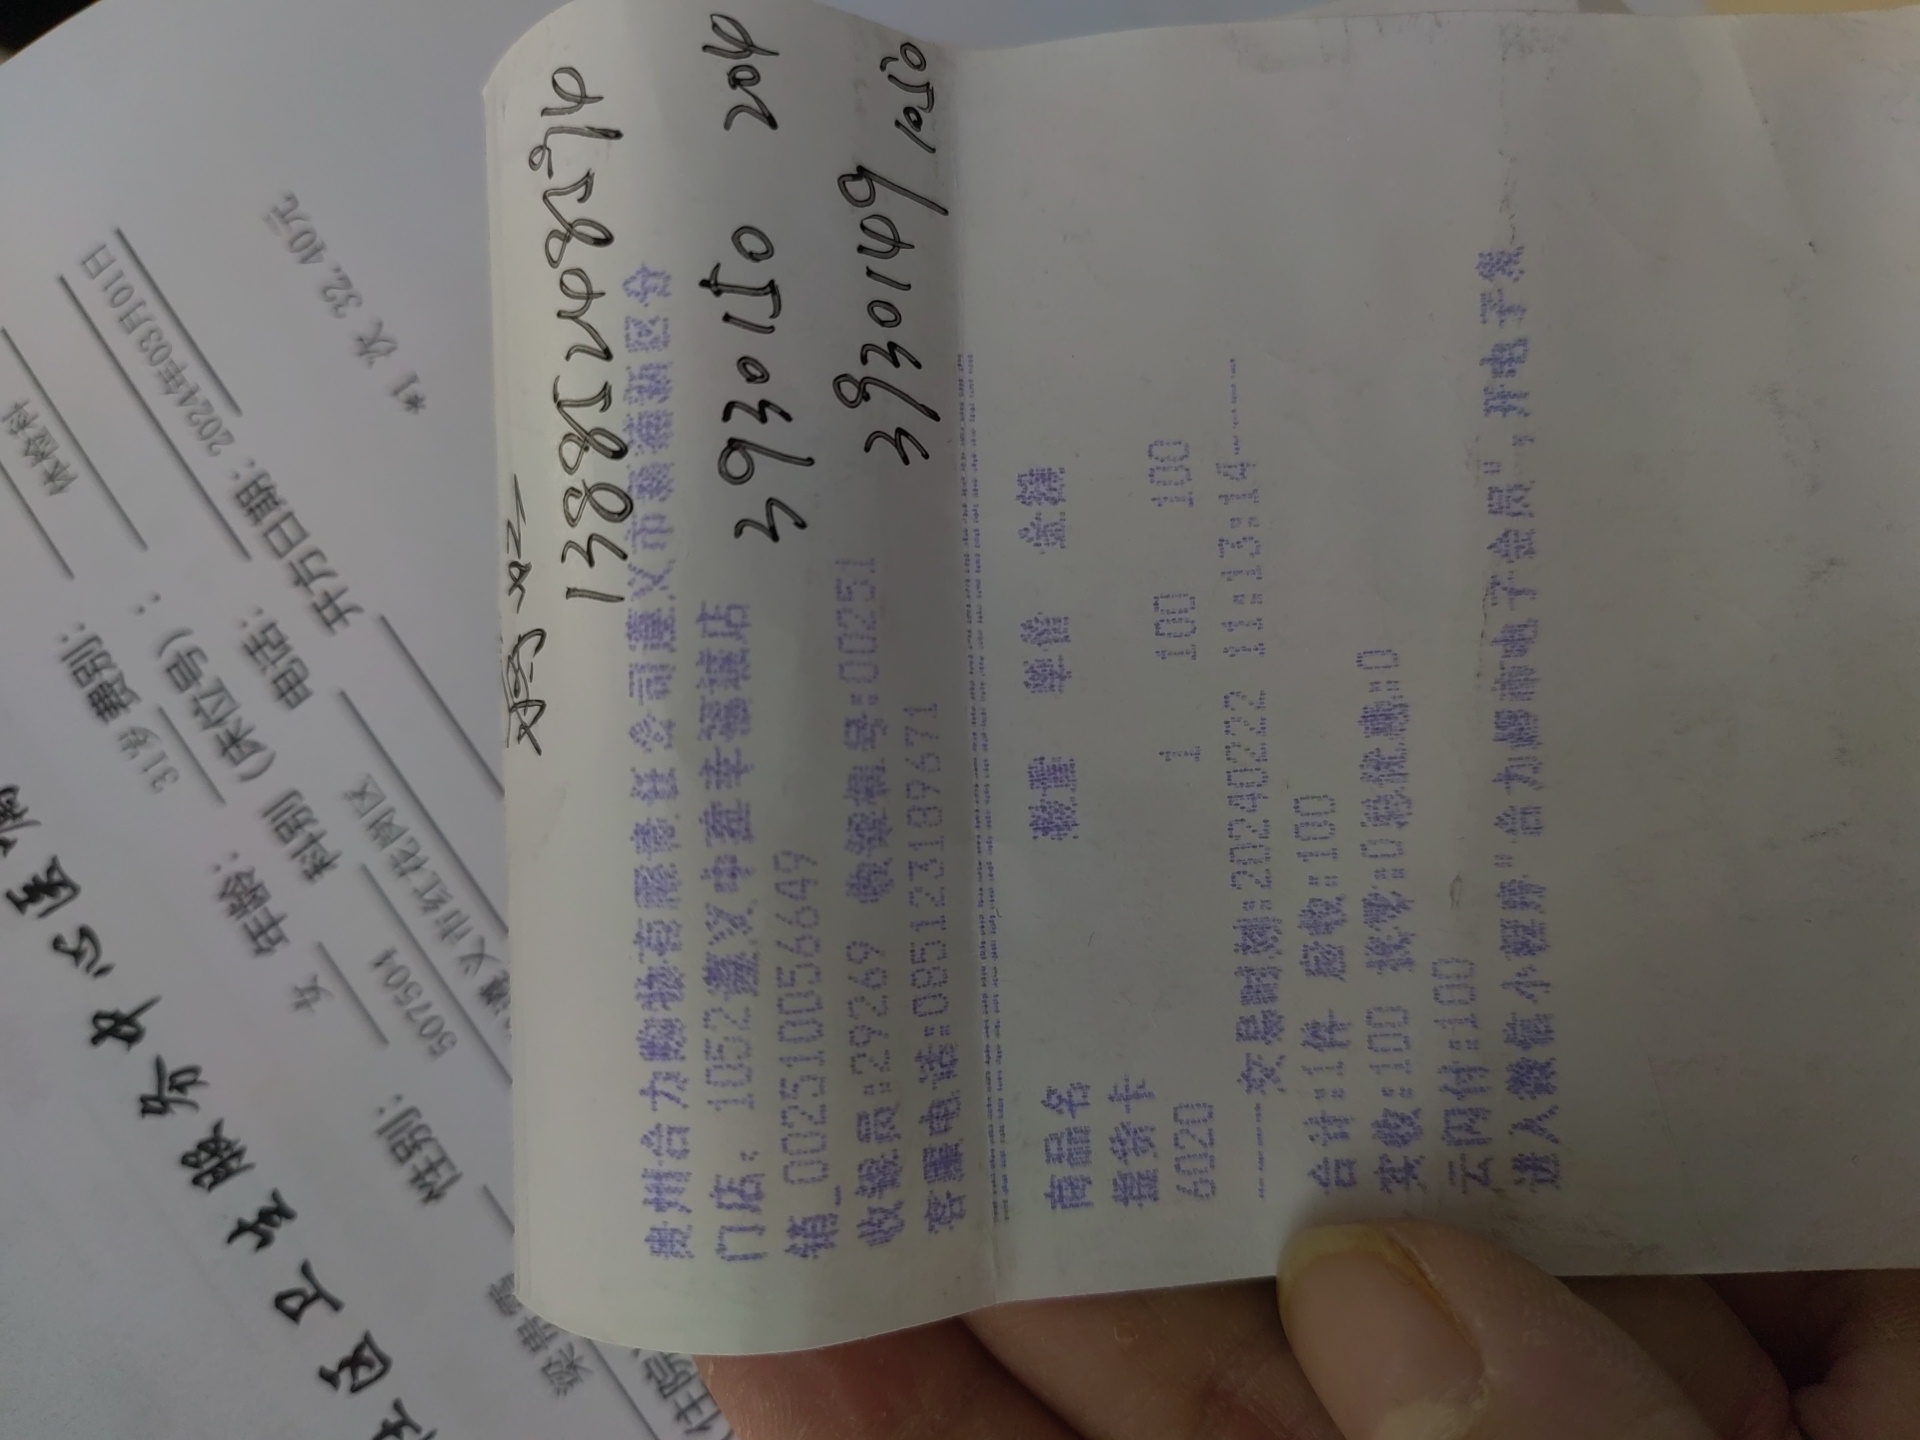 13885208524
3930150 204
3930149 1050
贵州合力购物有限责任公司遵义市新蒲新区分
门店: 1052遵义中建幸福城店
销_002510056649
收银员:29269 收银机号:00251
客服电话:085123189671
商品名 数量 单价 金额
提货卡
6020 1 100 100
-----交易时刻:20240222 11:13:14-----
合计:1件 应收:100
实收:100 找零:0 总优惠:0
云闪付:100
进入微信小程序"合力超市电子会员",开电子票
社区卫生服务中心医
性别: 女 年龄: 31岁 费别:
507504 科别(床位号):
遵义市红花岗区 电话:
体检科
开方日期: 2024年03月01日
*1 次 32.40元